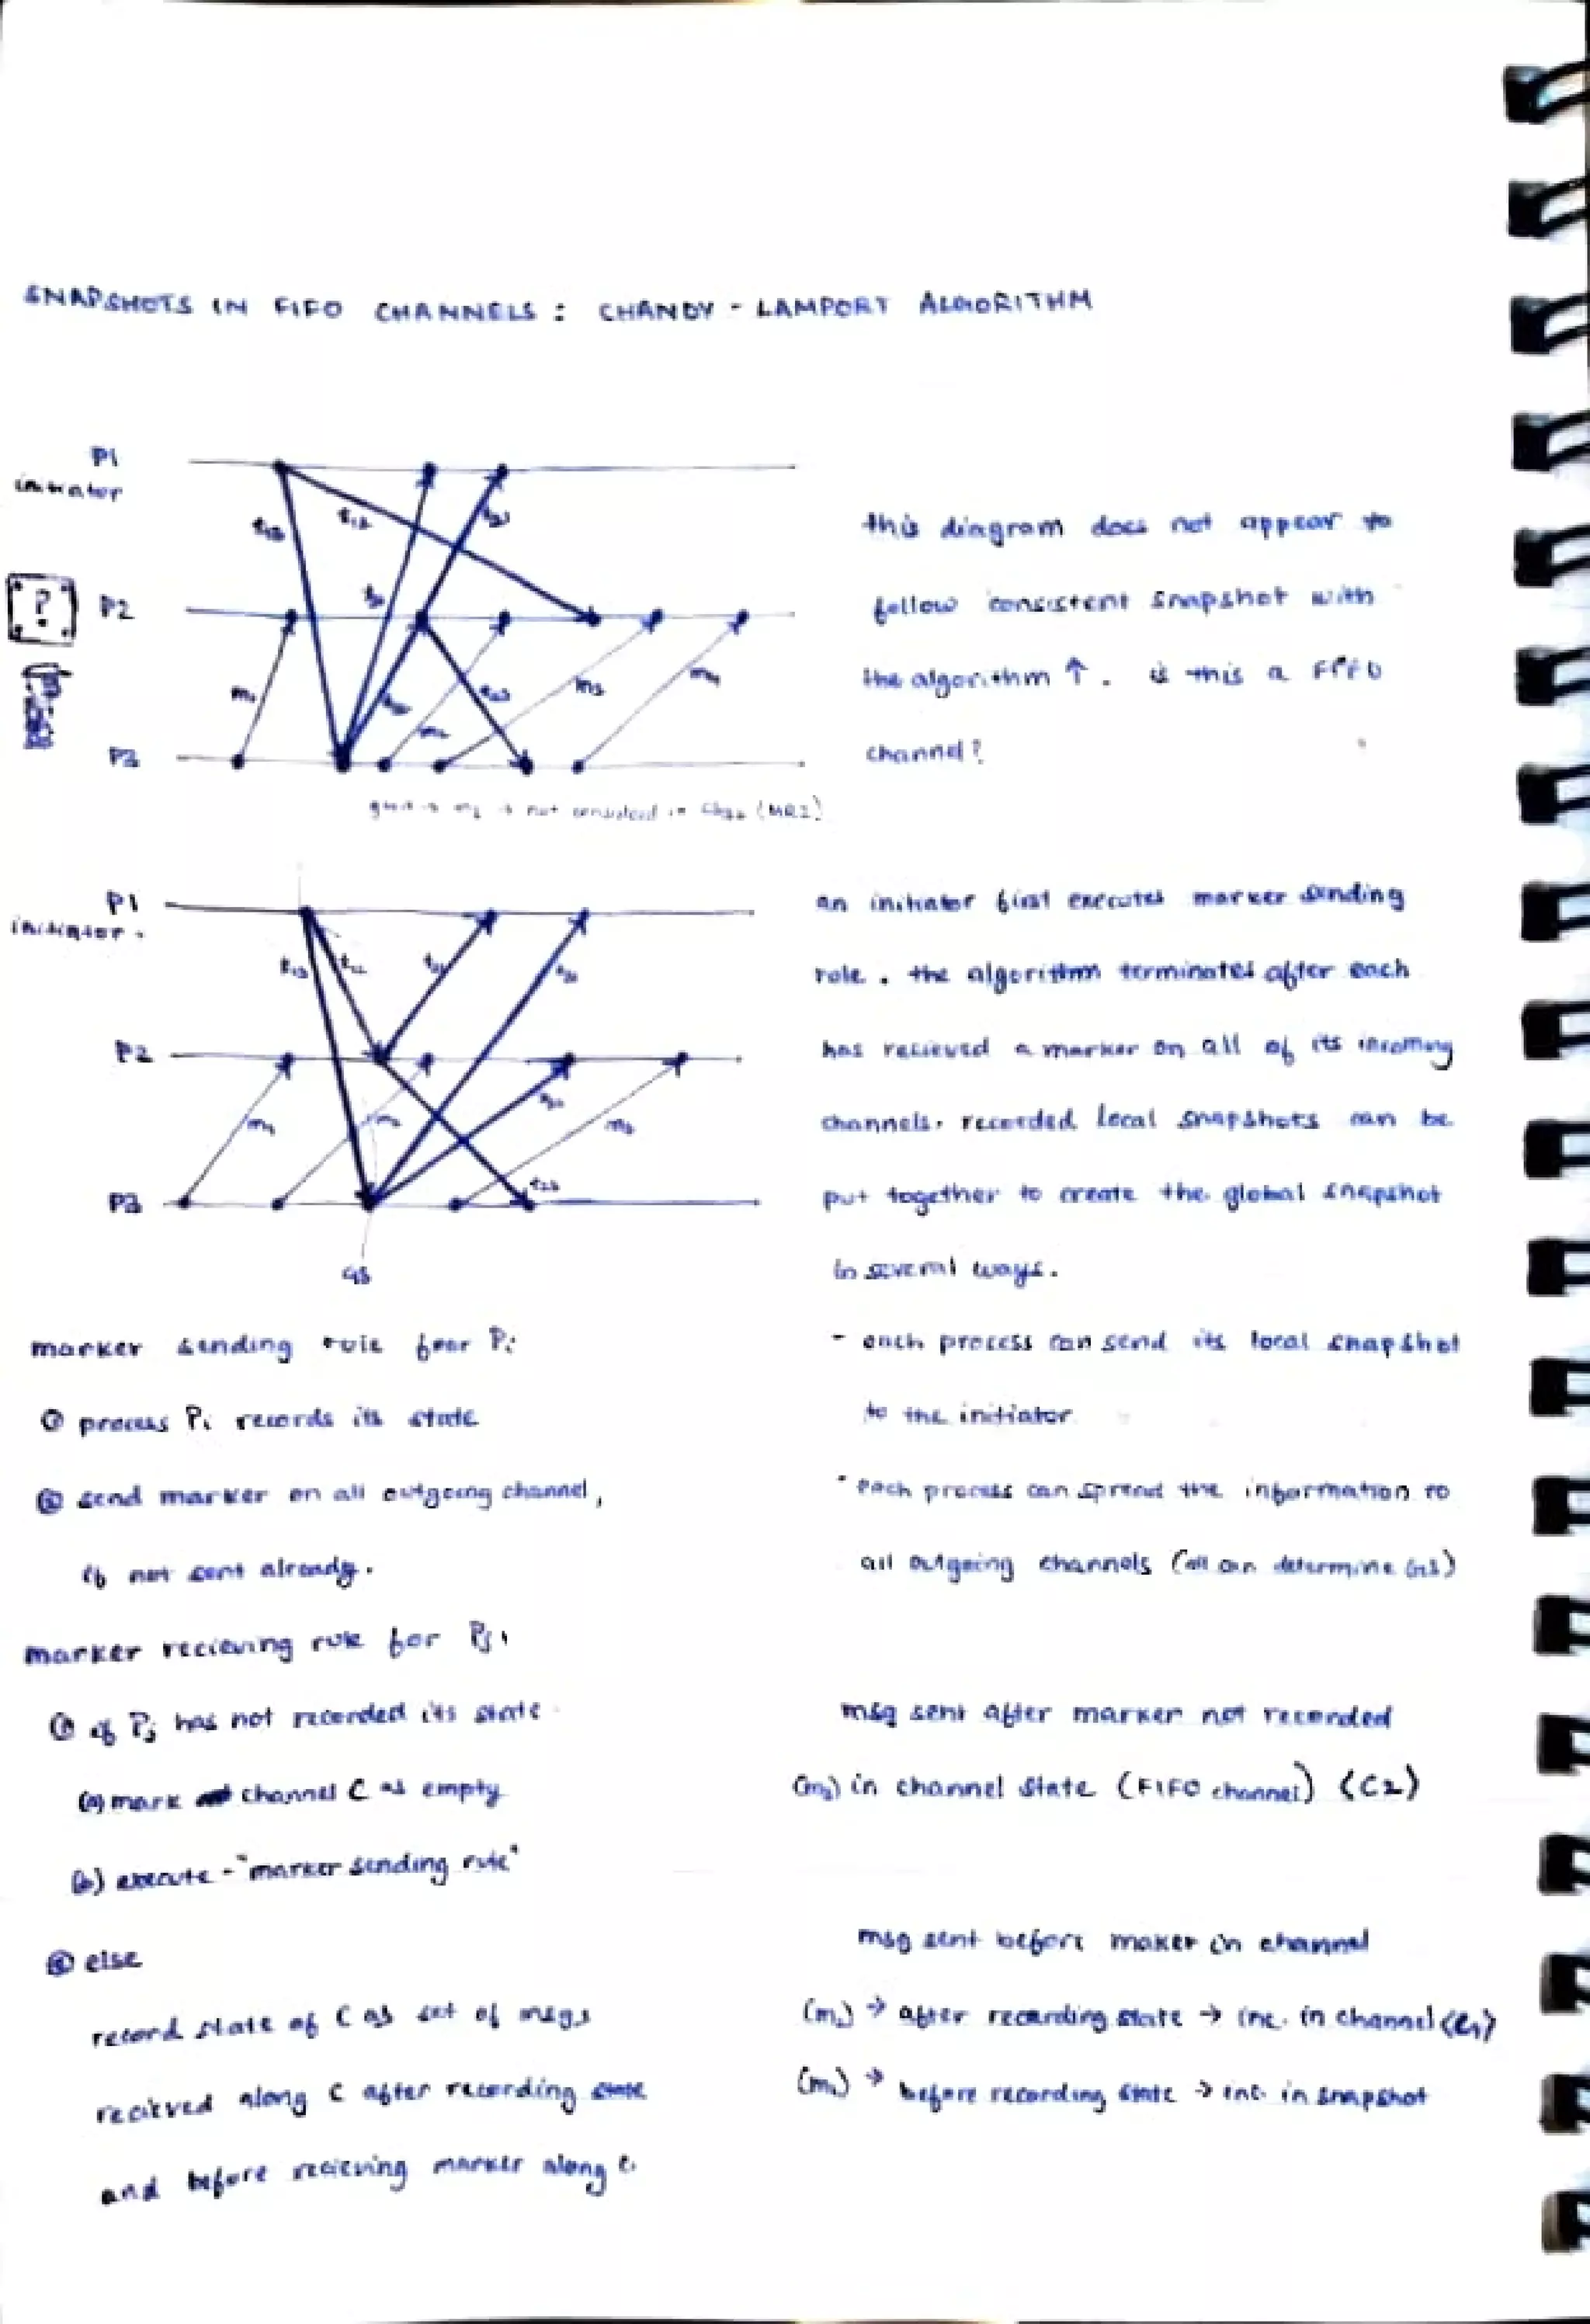 SNAPSHOTS IN FIFO CHANNELS : CHANDY - LAMPORT ALGORITHM
P1
initiator
t13
t12
t21
?
P2
m1
t23
m3
m4
P3
this diagram does not appear to
follow consistent snapshot with
the algorithm ↑. is this a FIFO
channel?
not considered in (MR2)
P1
initiator.
t13
t12
t21
t31
P2
m1
m2
t32
m3
P3
t23
GS
an initiator first executes marker sending
role. the algorithm terminates after each
has recieved a marker on all of its incoming
channels. recorded local snapshots can be
put together to create the global snapshot
in several ways.
- each process can send its local snapshot
to the initiator
- each process can spread the information to
all outgoing channels (all can determine GS)
marker sending rule for Pi
① process Pi records its state
② send marker on all outgoing channel,
if not sent already.
marker recieving rule for Pj
① if Pj has not recorded its state
(a) mark channel C as empty
(b) execute - "marker sending rule"
② else
record state of C as set of msgs
recieved along C after recording state
and before recieving marker along C
msg sent after marker not recorded
(m3) in channel state (FIFO channel) (C2)
msg sent before maker in channel
(m2) → after recording state → inc. in channel (C1)
(m1) → before recording state → inc. in snapshot